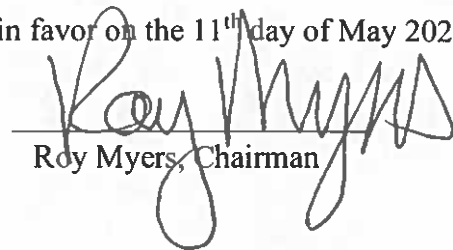 in favor on the 11th day of May 202
Roy Myers
Roy Myers, Chairman